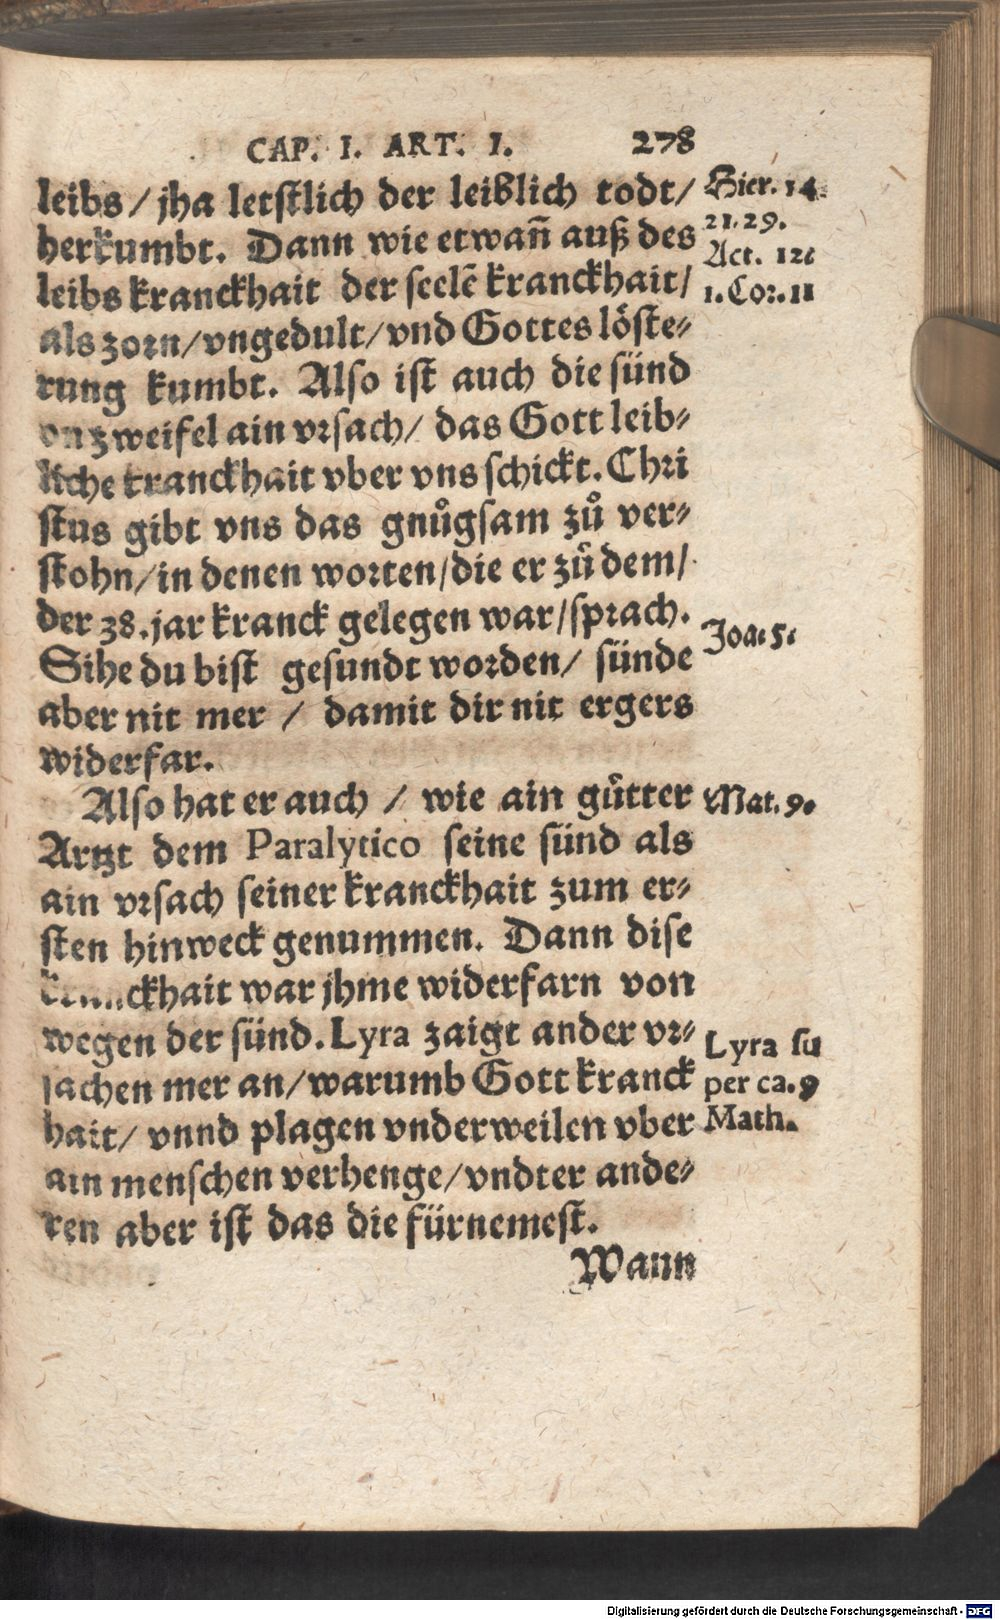 CAP. I. ART. I. 278
leibs / jha letstlich der leiblich todt /
herkumbt. Dann wie etwañ auß des
leibs kranckhait der seelẽ kranckhait /
als zorn / vngedult / vnd Gottes löste-
rung kumbt. Also ist auch die sünd
onzweifel ain vrsach / das Gott leib-
liche kranckhait vber vns schickt. Chri
stus gibt vns das gnůgsam zů ver-
stohn / in denen worten / die er zů dem /
der 38. jar kranck gelegen war / sprach.
Sihe du bist gesundt worden / sünde
aber nit mer / damit dir nit ergers
widerfar.
Also hat er auch / wie ain gůtter
Artzt dem Paralytico seine sünd als
ain vrsach seiner kranckhait zum er-
sten hinweck genummen. Dann dise
kranckhait war jhme widerfarn von
wegen der sünd. Lyra zaigt ander vr-
sachen mer an / warumb Gott kranck
hait / vnnd plagen vnderweilen vber
ain menschen verhenge / vndter ande-
ren aber ist das die fürnemest.
Wann
Hier. 14.
21. 29.
Act. 12.
1. Cor. 11
Joa. 5.
Mat. 9.
Lyra su
per ca. 9
Math.
Digitalisierung gefördert durch die Deutsche Forschungsgemeinschaft - DFG